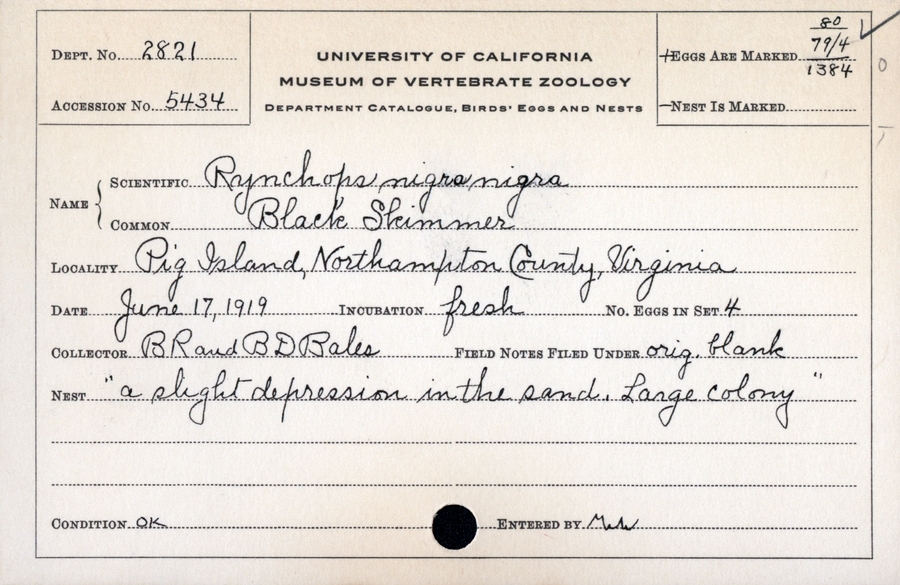 DEPT. NO. 2821
ACCESSION NO. 5434
UNIVERSITY OF CALIFORNIA
MUSEUM OF VERTEBRATE ZOOLOGY
DEPARTMENT CATALOGUE, BIRDS' EGGS AND NESTS
80
EGGS ARE MARKED 79/4
1384
NEST IS MARKED
NAME
SCIENTIFIC Rynchops nigra nigra
COMMON Black Skimmer
LOCALITY Pig Island, Northampton County, Virginia
DATE June 17, 1919 INCUBATION fresh NO. EGGS IN SET 4
COLLECTOR B R and B D Bales FIELD NOTES FILED UNDER orig. blank
NEST "a slight depression in the sand. Large colony"
CONDITION OK ENTERED BY